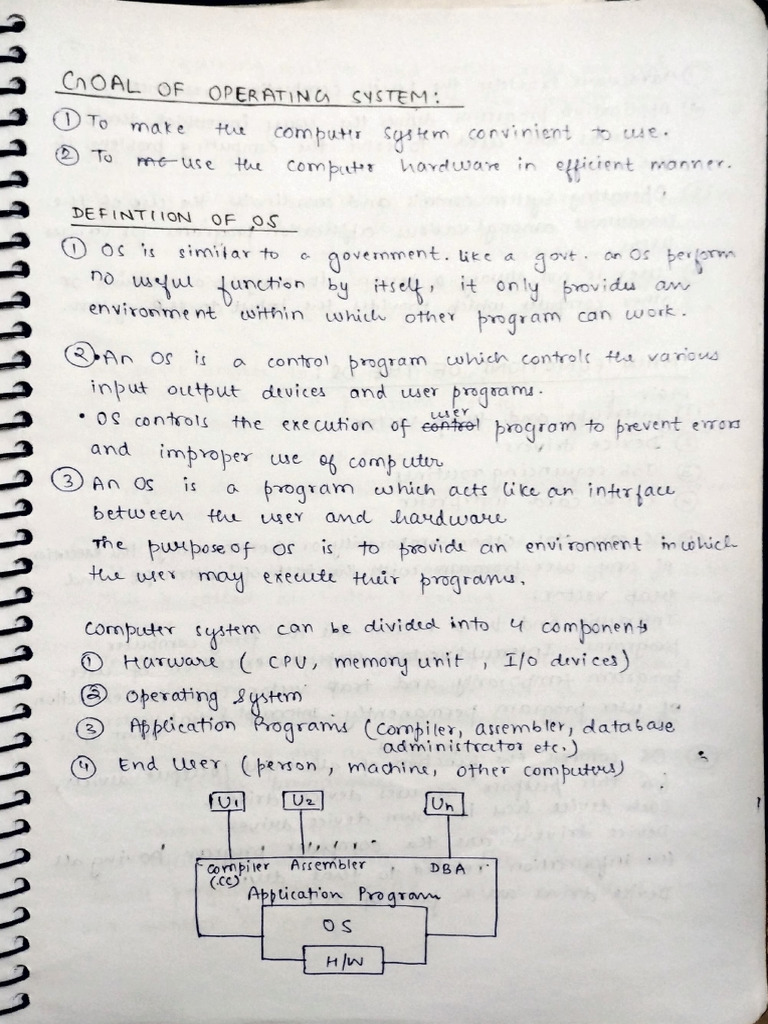 GOAL OF OPERATING SYSTEM:
① To make the computer system convinient to use.
② To use the computer hardware in efficient manner.
DEFINTIION OF OS
① OS is similar to a government. Like a govt. an OS perform
no useful function by itself, it only provides an
environment within which other program can work.
② • An OS is a control program which controls the various
input output devices and user programs.
• OS controls the execution of user program to prevent errors
and improper use of computer
③ An OS is a program which acts like an interface
between the user and hardware
The purpose of OS is, to provide an environment in which
the user may execute their programs.
Computer system can be divided into 4 components
① Harware ( CPU, memory unit , I/O devices)
② Operating System
③ Application Programs (compiler, assembler, database
administrator etc.)
④ End User (person , machine, other computers)
U1 U2 Un
Compiler Assembler DBA
(.CC)
Application Program
OS
H/W